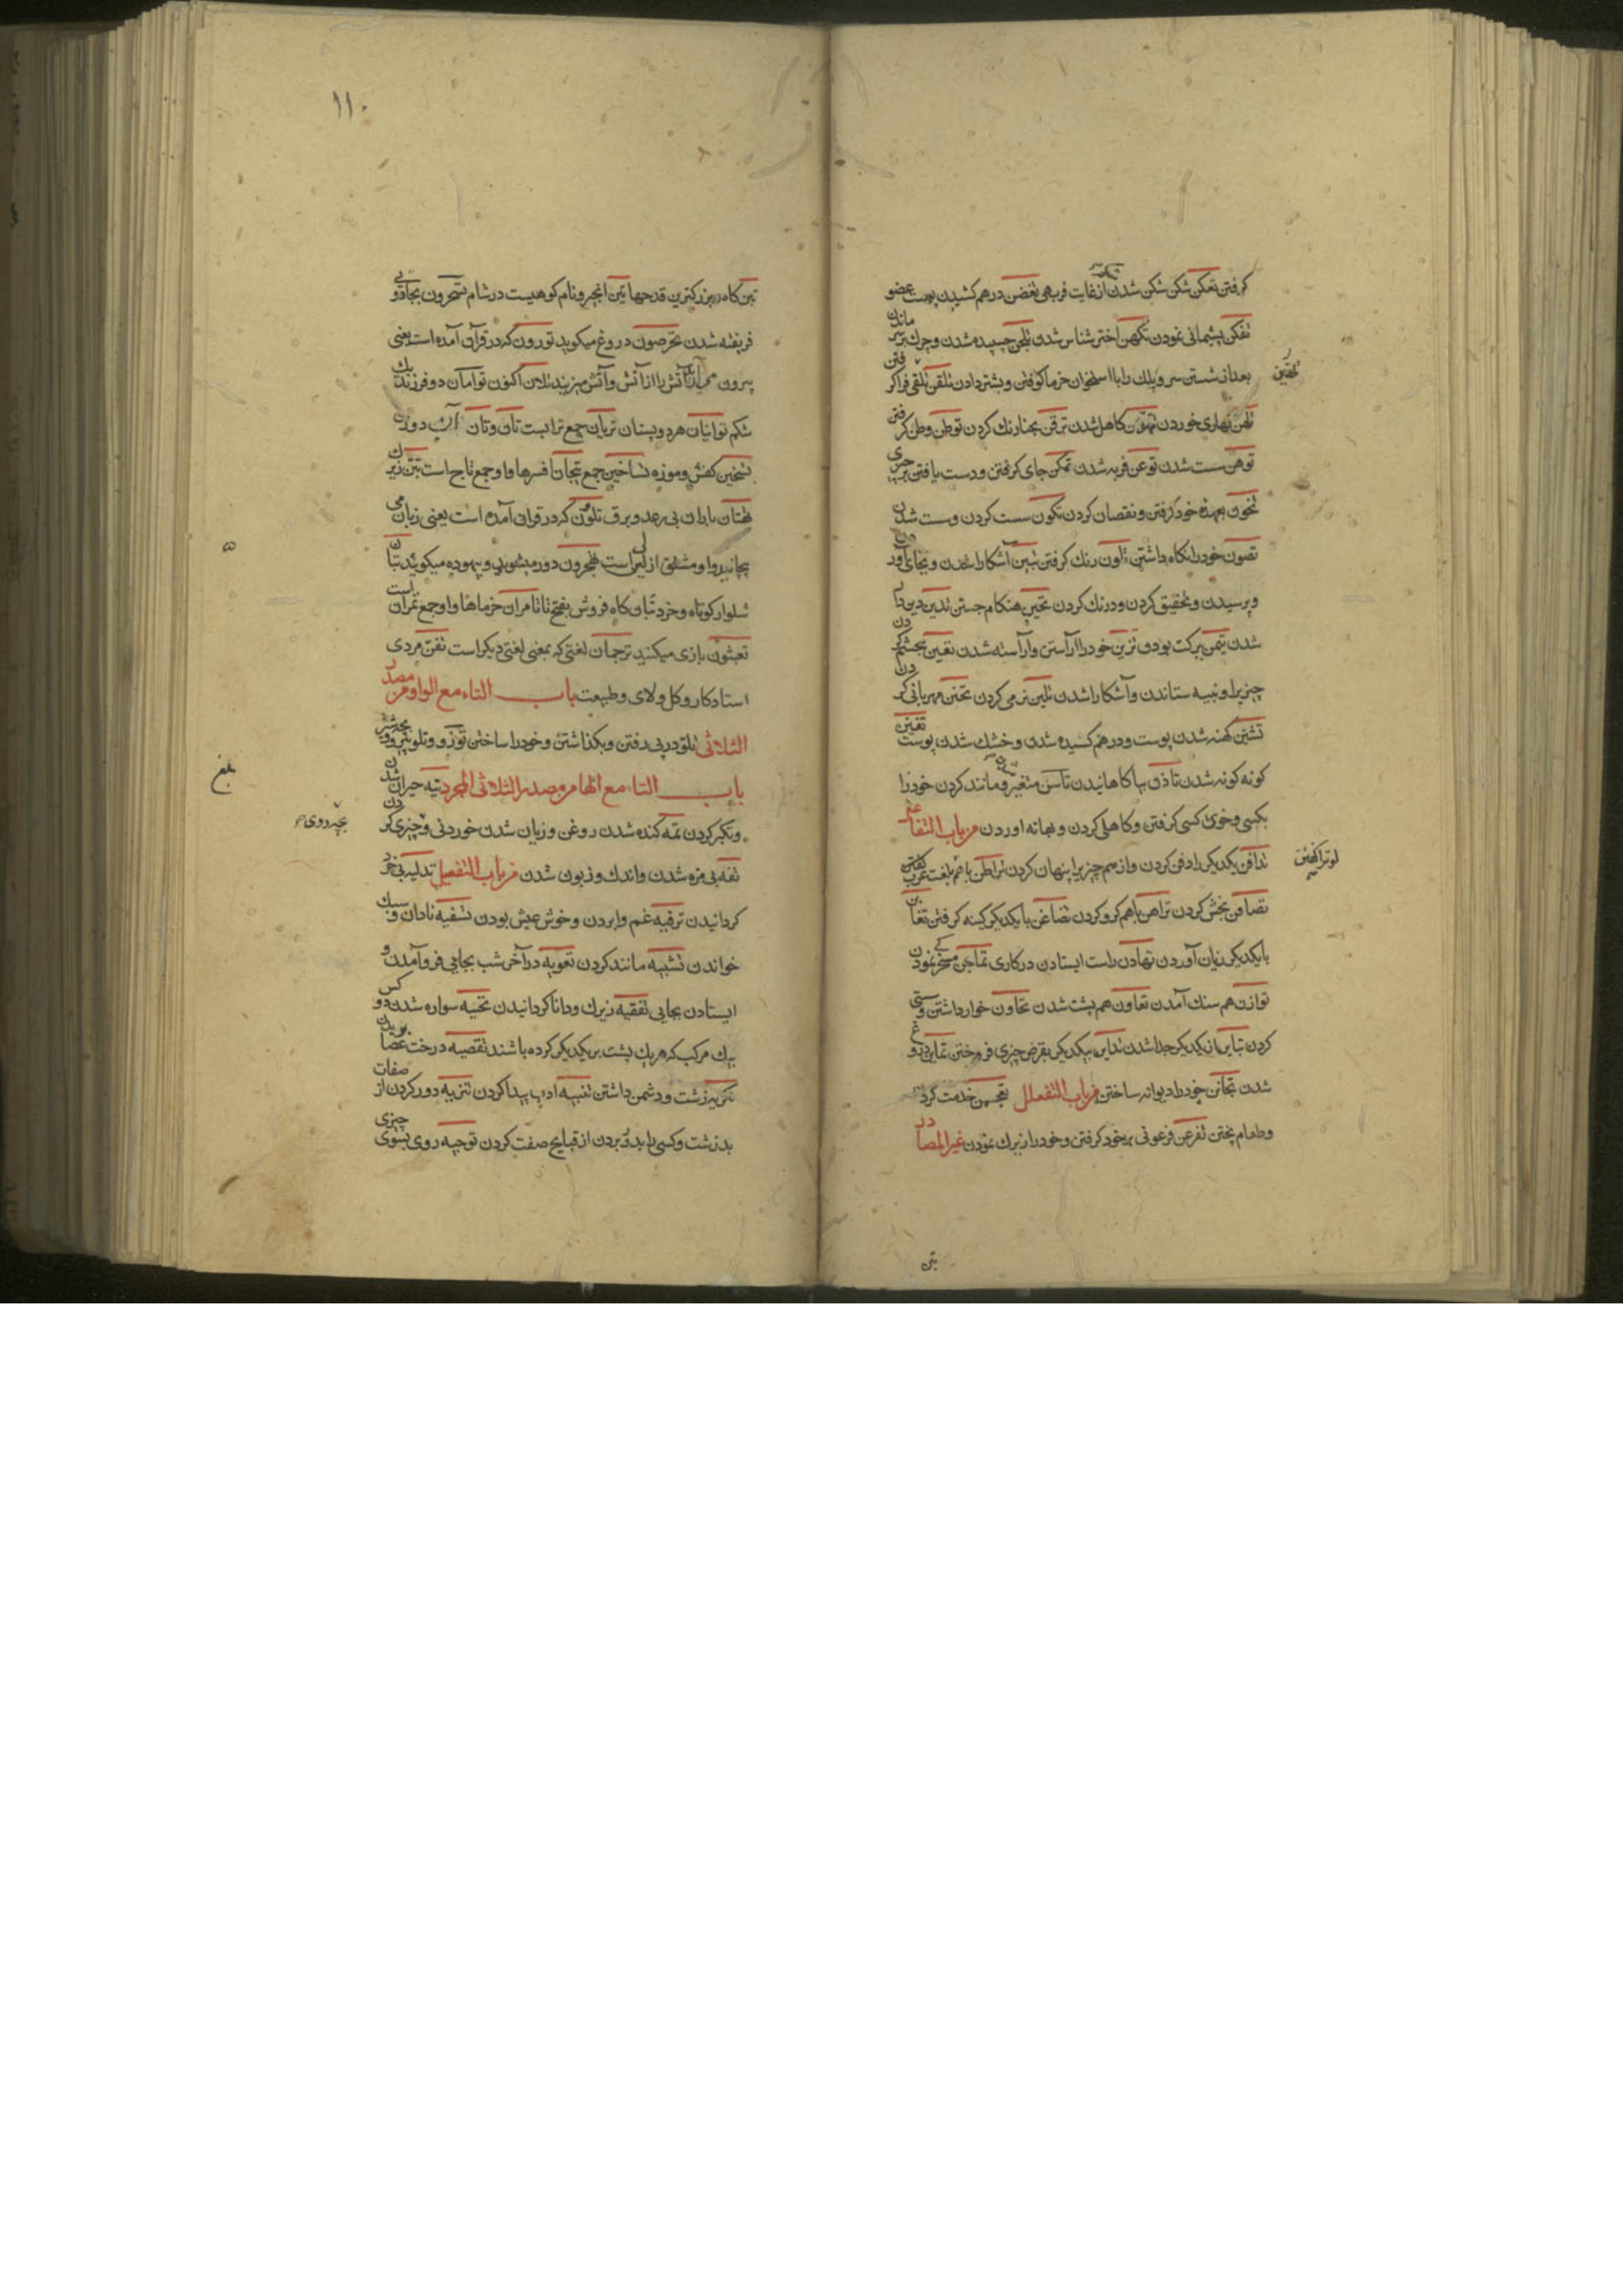 گرفتن تعکن شکن شکن شدن از غایت فربهی تغضن درهم کشیدن پوست عضو
تفکن پشیمانی نمودن تکهن اختر شناس شدن تلجن چسپیده شدن و چرک بر سر ماندن
بعد از شستن سر و پلک را با استخوان خرما کوفتن و بشتر دادن تلقن تلقی فرا گرفتن
تلهن نهاری خوردن تهون کاهل شدن ترقن بحنا رنك کردن توطن وطن گرفتن
توهن سست شدن توعن فربه شدن تمکن جای گرفتن و دست یافتن بر چیزی
تخون بعهده خود گرفتن و نقصان کردن تکون سست کردن و سست شدن
تصون خود را نگاه داشتن تلون رنك گرفتن تبین آشکارا شدن و بجای آوردن
و پرسیدن و تحقیق کردن و درنك کردن تحین هنکام جستن تدین دین دار
شدن تیمن ببرکت بودن تزین خود را آراستن و آراسته شدن تعین بچشم کردن
چیزیرا و نسیه ستاندن و آشکارا شدن تلین نرمی کردن تحنن مهربانی کردن
تشنن کهنه شدن پوست و درهم کشیده شدن و خشك شدن پوست تفنن
کونه کونه شدن تاذن بیاکاهانیدن تاسن متغیر شدن و مانند کردن خود را
بکسی و خوی کسی گرفتن و کاهلی کردن و بهانه اوردن من باب التفاعل
تدافن یکدیکر را دفن کردن و از هم چیزیرا پنهان کردن تراطن با هم بلغت عرب گفتن
تصافن بخش کردن تراهن باهم کرو کردن تضاغن با یکدیکر کینه گرفتن تغابن
با یکدیکر زیان آوردن تهادن راست ایستادن در کاری تماجن مسخرکی نمودن
توازن هم سنك آمدن تعاون هم پشت شدن تهاون خوار داشتن و سستی
کردن تباین از یکدیکر جدا شدن تداین بیکدیکر بقرض چیزی فروختن تماین دروغ
شدن تجانن خود را دیوانه ساختن من باب التفعلل خدمت کردن
و طعام پختن تفرعن فرعونی بر خود گرفتن و خود را زیرك نمودن غیر المصادر
تبن
۱۱۰
تبن کاه و بزرکترین قدحها تین انجیر و نام کوهیست در شام تسحرون بجادوی
فریفته شدن تخرصون دروغ میکوید تورون که در قرآن آمده است یعنی
بیرون می آرید آتش را از آتش و آتش میزنید تلان اکنون توامان دو فرزند یك
شکم توابان هر دو پستان تربان جمع ترابست تان و تان آن دو زن
تسخین کفش و موزه تساخین جمع تیجان افسرها و او جمع تاج است تبن زیرك
تهتان باران بی رعد و برق تلوون که در قرآن آمده است یعنی زبان می
پیچانید و او مشتق از لی است تهجرون دور میشوید و بیهوده میکوئید تبان
شلوار کوتاه و خرد تبان کاه فروش بفتح تا تامران خرماها و او جمع تمرانست
تعبثون بازی میکنید ترجمان لغتی که بمعنی لغتی دیکر است تقن مردی
استاد کار و کل و لای و طبیعت باب التاء مع الواو من مصدر
الثلاثی تلو در پی رفتن و بگذاشتن و خود را ساختن
باب التاء مع الها من مصدر الثلاثی المجرد تیه حیران شدن
و تکبر کردن تمه کنده شدن روغن و زیان شدن خوردنی و چیزی کردن
تفه بی مزه شدن و اندك و زبون شدن من باب التفعیل تدلیه بی خرد
کردانیدن ترفیه غم وا بردن و خوش عیش بودن تسفیه نادان و سبك
خواندن تشبیه مانند کردن تعویه در آخر شب بجایی فرو آمدن و
ایستادن بجایی تفقیه زیرك و دانا کردانیدن تحنیه سواره شدن دو کس
بیك مرکب که هر یك پشت بر یکدیکر کرده باشند تقصیه درخت عضا بریدن
تکریه زشت و دشمن داشتن تنبیه ادب پیدا کردن تنزیه دور کردن از صفات
بد زشت و کسی را بد بردن از قبایح صفت کردن توجیه روی بسوی چیزی
بلغ